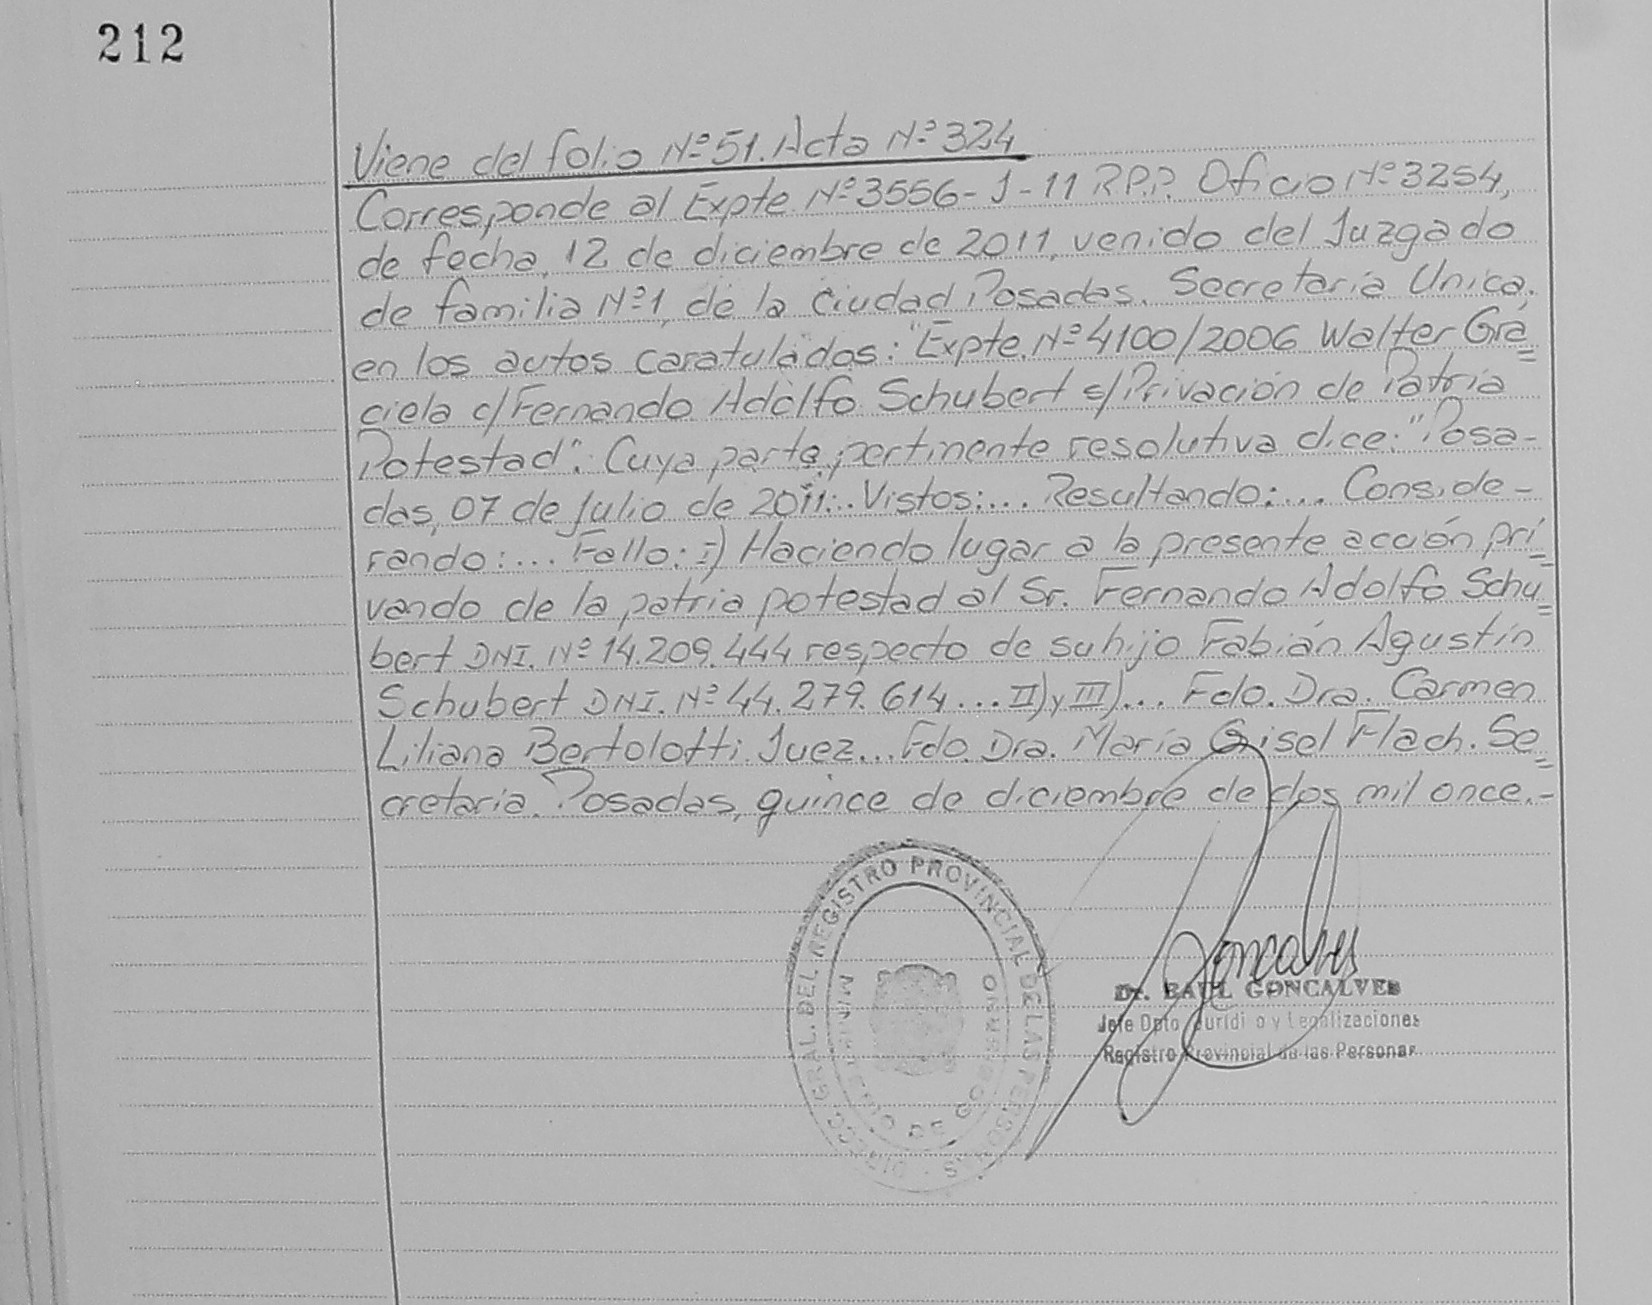 212
Viene del folio Nº 51. Acta Nº 324
Corresponde al Expte Nº 3556- J -11 R.P.P. Oficio Nº 3254,
de fecha, 12 de diciembre de 2011, venido del Juzgado
de familia Nº1, de la Ciudad Posadas. Secretaría Unica,
en los autos caratulados: "Expte. Nº 4100/2006 Walter Gra=
ciela c/Fernando Adolfo Schubert s/Privación de Patria
Potestad". Cuya parte pertinente resolutiva dice: "Posa-
das, 07 de Julio de 2011:.. Vistos:... Resultando:... Conside-
rando:... Fallo: I) Haciendo lugar a la presente acción pri=
vando de la patria potestad al Sr. Fernando Adolfo Schu=
bert DNI. Nº 14.209.444 respecto de su hijo Fabián Agustín
Schubert DNI. Nº 44.279.614... II) y III)... Fdo. Dra. Carmen
Liliana Bertolotti. Juez... Fdo. Dra. María Gisel Flach. Se=
cretaria. Posadas, quince de diciembre de dos mil once.-
DIRECC. GRAL. DEL REGISTRO PROVINCIAL DE LAS PERSONAS
MINISTERIO DE GOBIERNO
Goncalves
Dr. RAUL GONCALVES
Jefe Dpto Jurídi o y Legalizaciones
Registro Provincial de las Personas